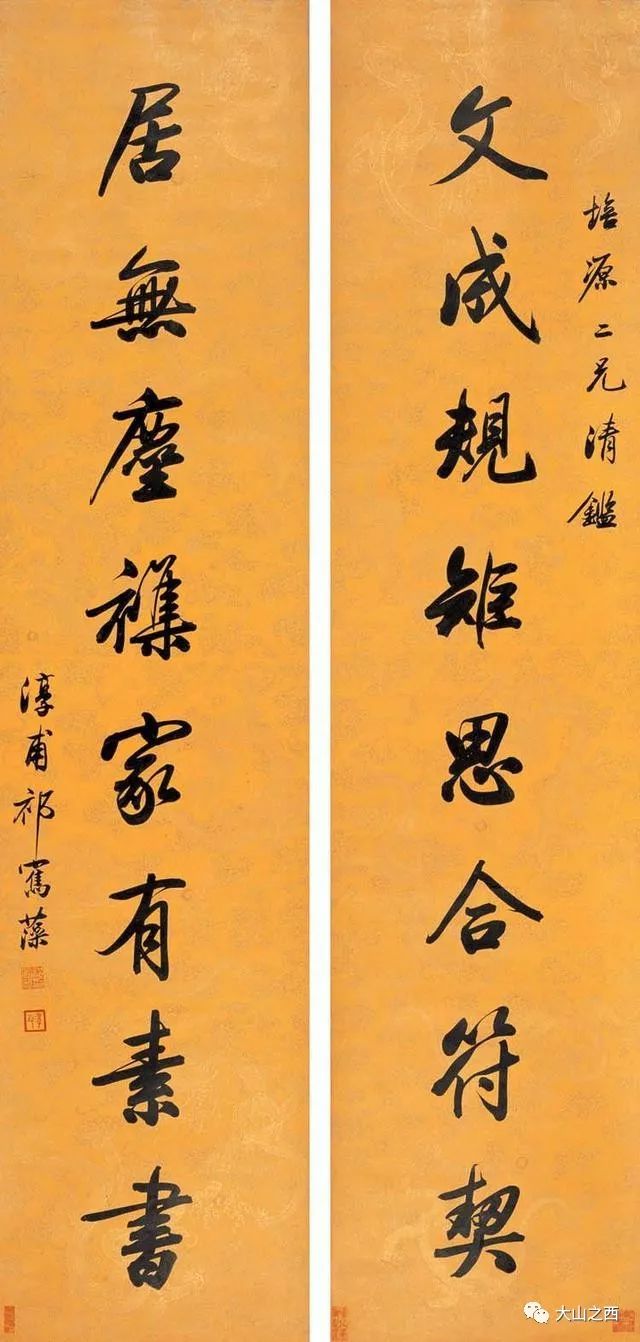 培源二兄清鑑
文成規矩思合符契
居無塵襍家有素書
淳甫祁寯藻
大山之西